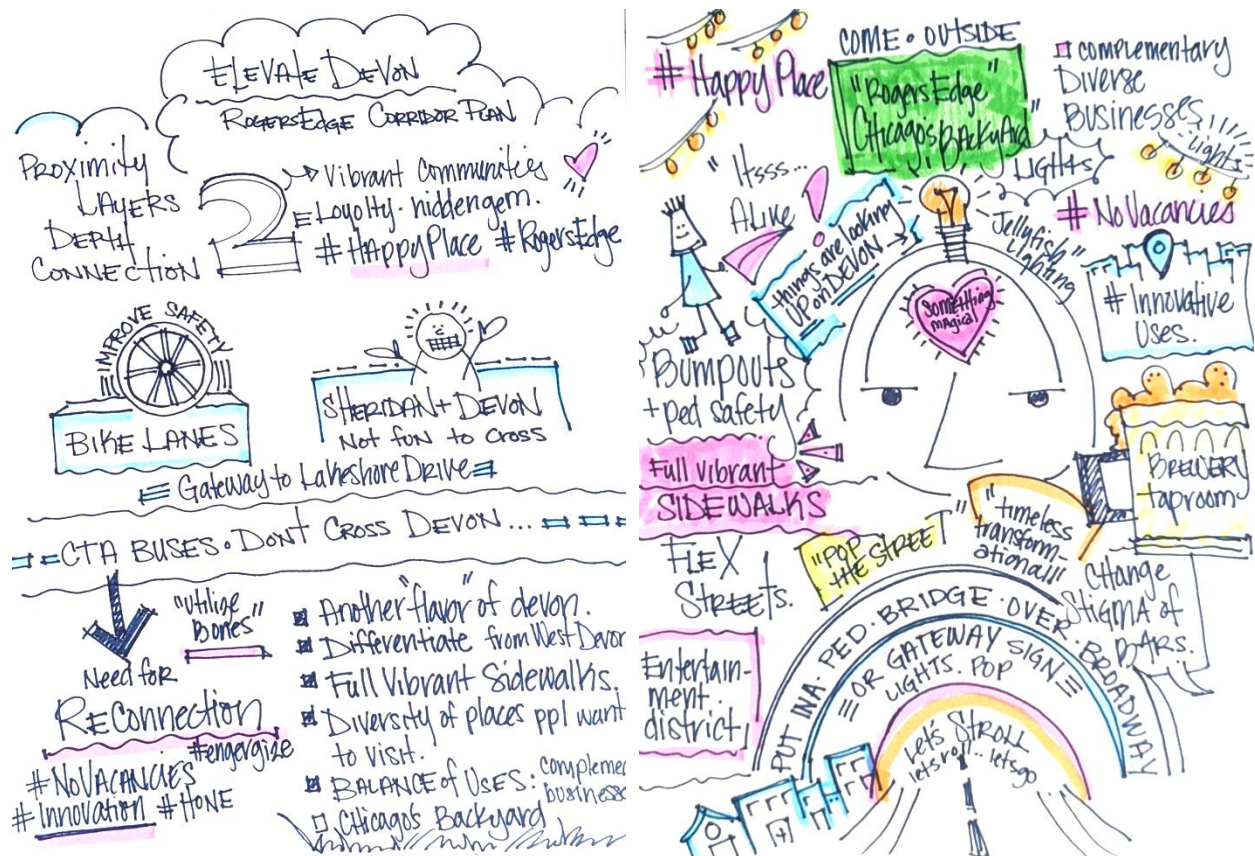 ELEVATE DEVON
ROGERSEDGE CORRIDOR PLAN
PROXIMITY
LAYERS
DEPTH
CONNECTION
2
Vibrant Communities
Loyolty · hidden gem.
#HAppyPlace #RogersEdge
IMPROVE SAFETY
BIKE LANES
SHERIDAN + DEVON
Not fun to cross
Gateway to Lakeshore Drive
CTA BUSES · DON'T CROSS DEVON...
"Utilize
Bones"
Need for
REConnection
#engergize
#NoVACANCIES
#Innovation #HONE
Another "flavor" of devon.
Differentiate from West Devon
Full Vibrant Sidewalks.
Diversity of places ppl want
to visit.
BALANCE of Uses: complemen
business
Chicago's Backyard
COME · OUTSIDE
#HappyPlace
"RogersEdge"
Chicago's BAckyArd"
complementary
Diverse
Businesses
Lights
LIGHTS
"Itsss...
ALIVE!
things are looking
UP on DEVON
"Jellyfish"
Lighting
#NoVacancies
Something
magical
#Innovative
Uses.
Bumpouts
+ ped safety
Full vibrant
SIDEWALKS
BREWERY
taproom
"POP
THE STREET"
"timeless
transform-
ational"
FLEX
STREETS.
Change
Stigma of
BARS.
Entertain-
ment
district
PUT IN A · PED · BRIDGE · OVER · BROADWAY
OR GATEWAY SIGN
LIGHTS. POP
Let's Stroll
lets roll... letsgo